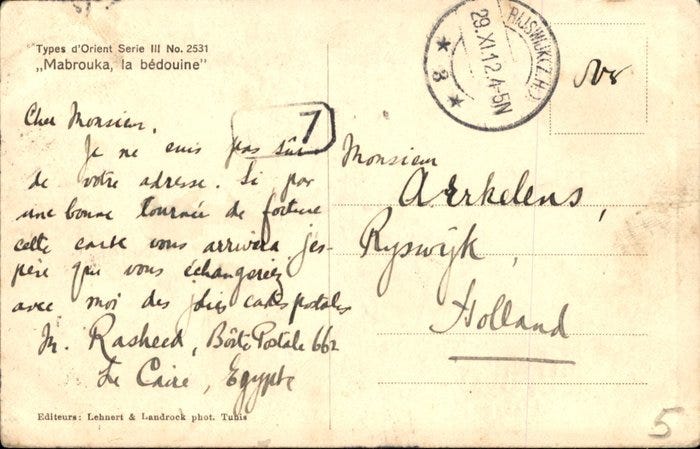 Types d'Orient Serie III No. 2531
„Mabrouka, la bédouine"
RIJSWIJK(Z.H.)
29.XI.12.4-5N
★ 8 ★
7
Cher Monsieur,
Je ne suis pas sûr
de votre adresse. Si par
une bonne tournée de fortune
cette carte vous arrivera j'es-
père que vous échangeriez
avec moi des jolies cartes postales
M. Rasheed, Boîte Postale 662
Le Caire, Egypte
Monsieur
Aerkelens,
Ryswijk,
Holland
Editeurs: Lehnert & Landrock phot. Tunis
5